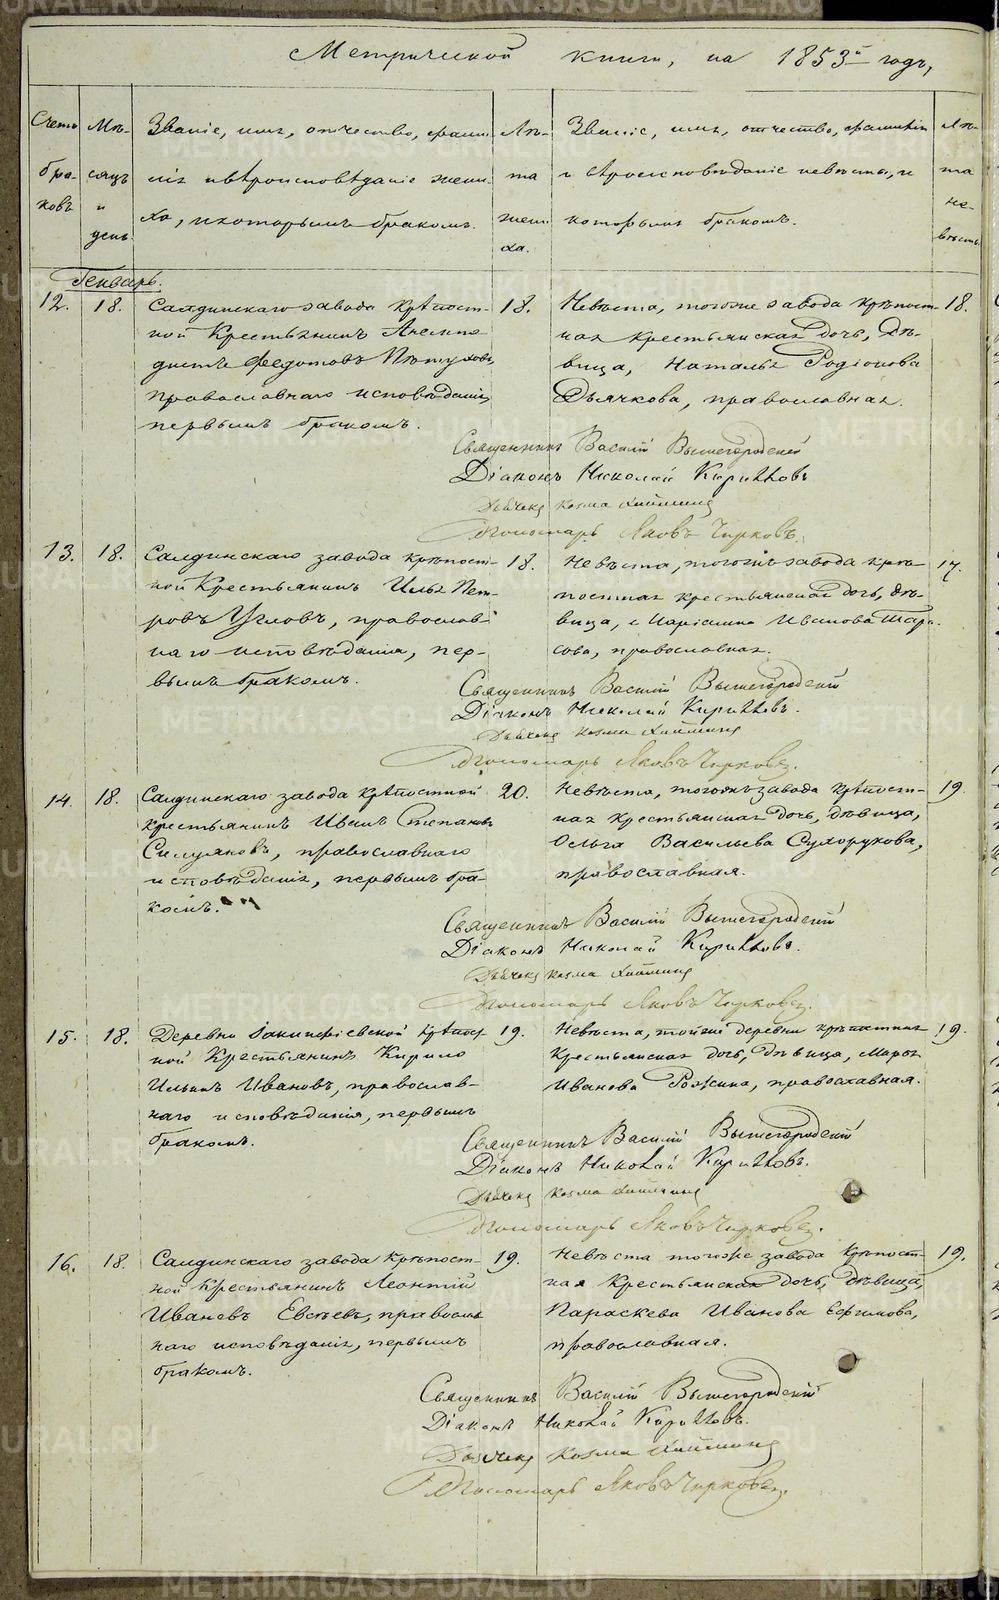 Метрической книги, на 1853й годъ,
Счетъ браковъ
Мѣсяцъ и день
Званіе, имя, отчество, фами-
лія и вѣроисповѣданіе жени-
ха, и которымъ бракомъ.
Лѣта жениха.
Званіе, имя, отчество, фамилія
и вѣроисповѣданіе невѣсты, и
которымъ бракомъ.
Лѣта невѣсты.
Генварь.
12. 18. Салдинскаго завода крѣпост-
ной Крестьянинъ
Федотовъ Пѣтуховъ,
православнаго исповѣданія,
первымъ бракомъ.
18.
Невѣста, тогоже завода крѣпост-
ная крестьянская дочь, дѣ-
вица, Наталья Родіонова
Дьячкова, православная.
18.
Священникъ Василій Вышегородскій
Діаконъ Николай Кирилловъ
Дьячекъ Козма
Пономарь Яковъ Чирковъ.
13. 18. Салдинскаго завода крѣпост-
ной Крестьянинъ Илья Пет-
ровъ Угловъ, православ-
наго исповѣданія, пер-
вымъ бракомъ.
18.
Невѣста, тогожъ завода крѣ-
постная крестьянская дочь, дѣ-
вица, Маріамна Иванова Тара-
сова, православная.
17.
Священникъ Василій Вышегородскій
Діаконъ Николай Кирилловъ.
Дьячекъ Козма
Пономарь Яковъ Чирковъ.
14. 18. Салдинскаго завода крѣпостной
крестьянинъ Иванъ Степановъ
Силуяновъ, православнаго
исповѣданія, первымъ бра-
комъ.
20.
Невѣста, тогожъ завода крѣпост-
ная крестьянская дочь, дѣвица,
Ольга Васильева Сухорукова,
православная.
19.
Священникъ Василій Вышегородскій
Діаконъ Николай Кирилловъ.
Дьячекъ Козма
Пономарь Яковъ Чирковъ.
15. 18. Деревни Іакинфіевской крѣпост
ной Крестьянинъ Кирило
Ильинъ Ивановъ, православ-
наго исповѣданія, первымъ
бракомъ.
19.
Невѣста, тойже деревни крѣпостная
Крестьянская дочь, дѣвица, Марья
Иванова Рожина, православная.
19.
Священникъ Василій Вышегородскій
Діаконъ Николай Кирилловъ.
Дьячекъ Козма
Пономарь Яковъ Чирковъ.
16. 18. Салдинскаго завода Крѣпост-
ной Крестьянинъ Леонтій
Ивановъ Евсѣевъ, православ
наго исповѣданія, первымъ
бракомъ.
19.
Невѣста тогоже завода крѣпост-
ная Крестьянская дочь, дѣвица,
Параскева Иванова Ефимова,
православная.
19.
Священникъ Василій Вышегородскій
Діаконъ Николай Кирилловъ.
Дьячекъ Козма
Пономарь Яковъ Чирковъ.
METRIKI.GASO-URAL.RU